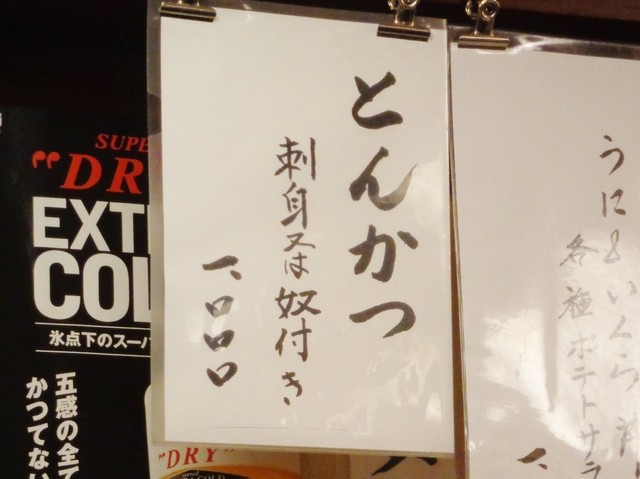 とんかつ
刺身又は奴付き
一、〇〇〇
SUPE
"DR
EXT
COL
氷点下のスーパ
五感の全て
かつてない
"DRY"
うにといくら
各種ポテトサラ
一、